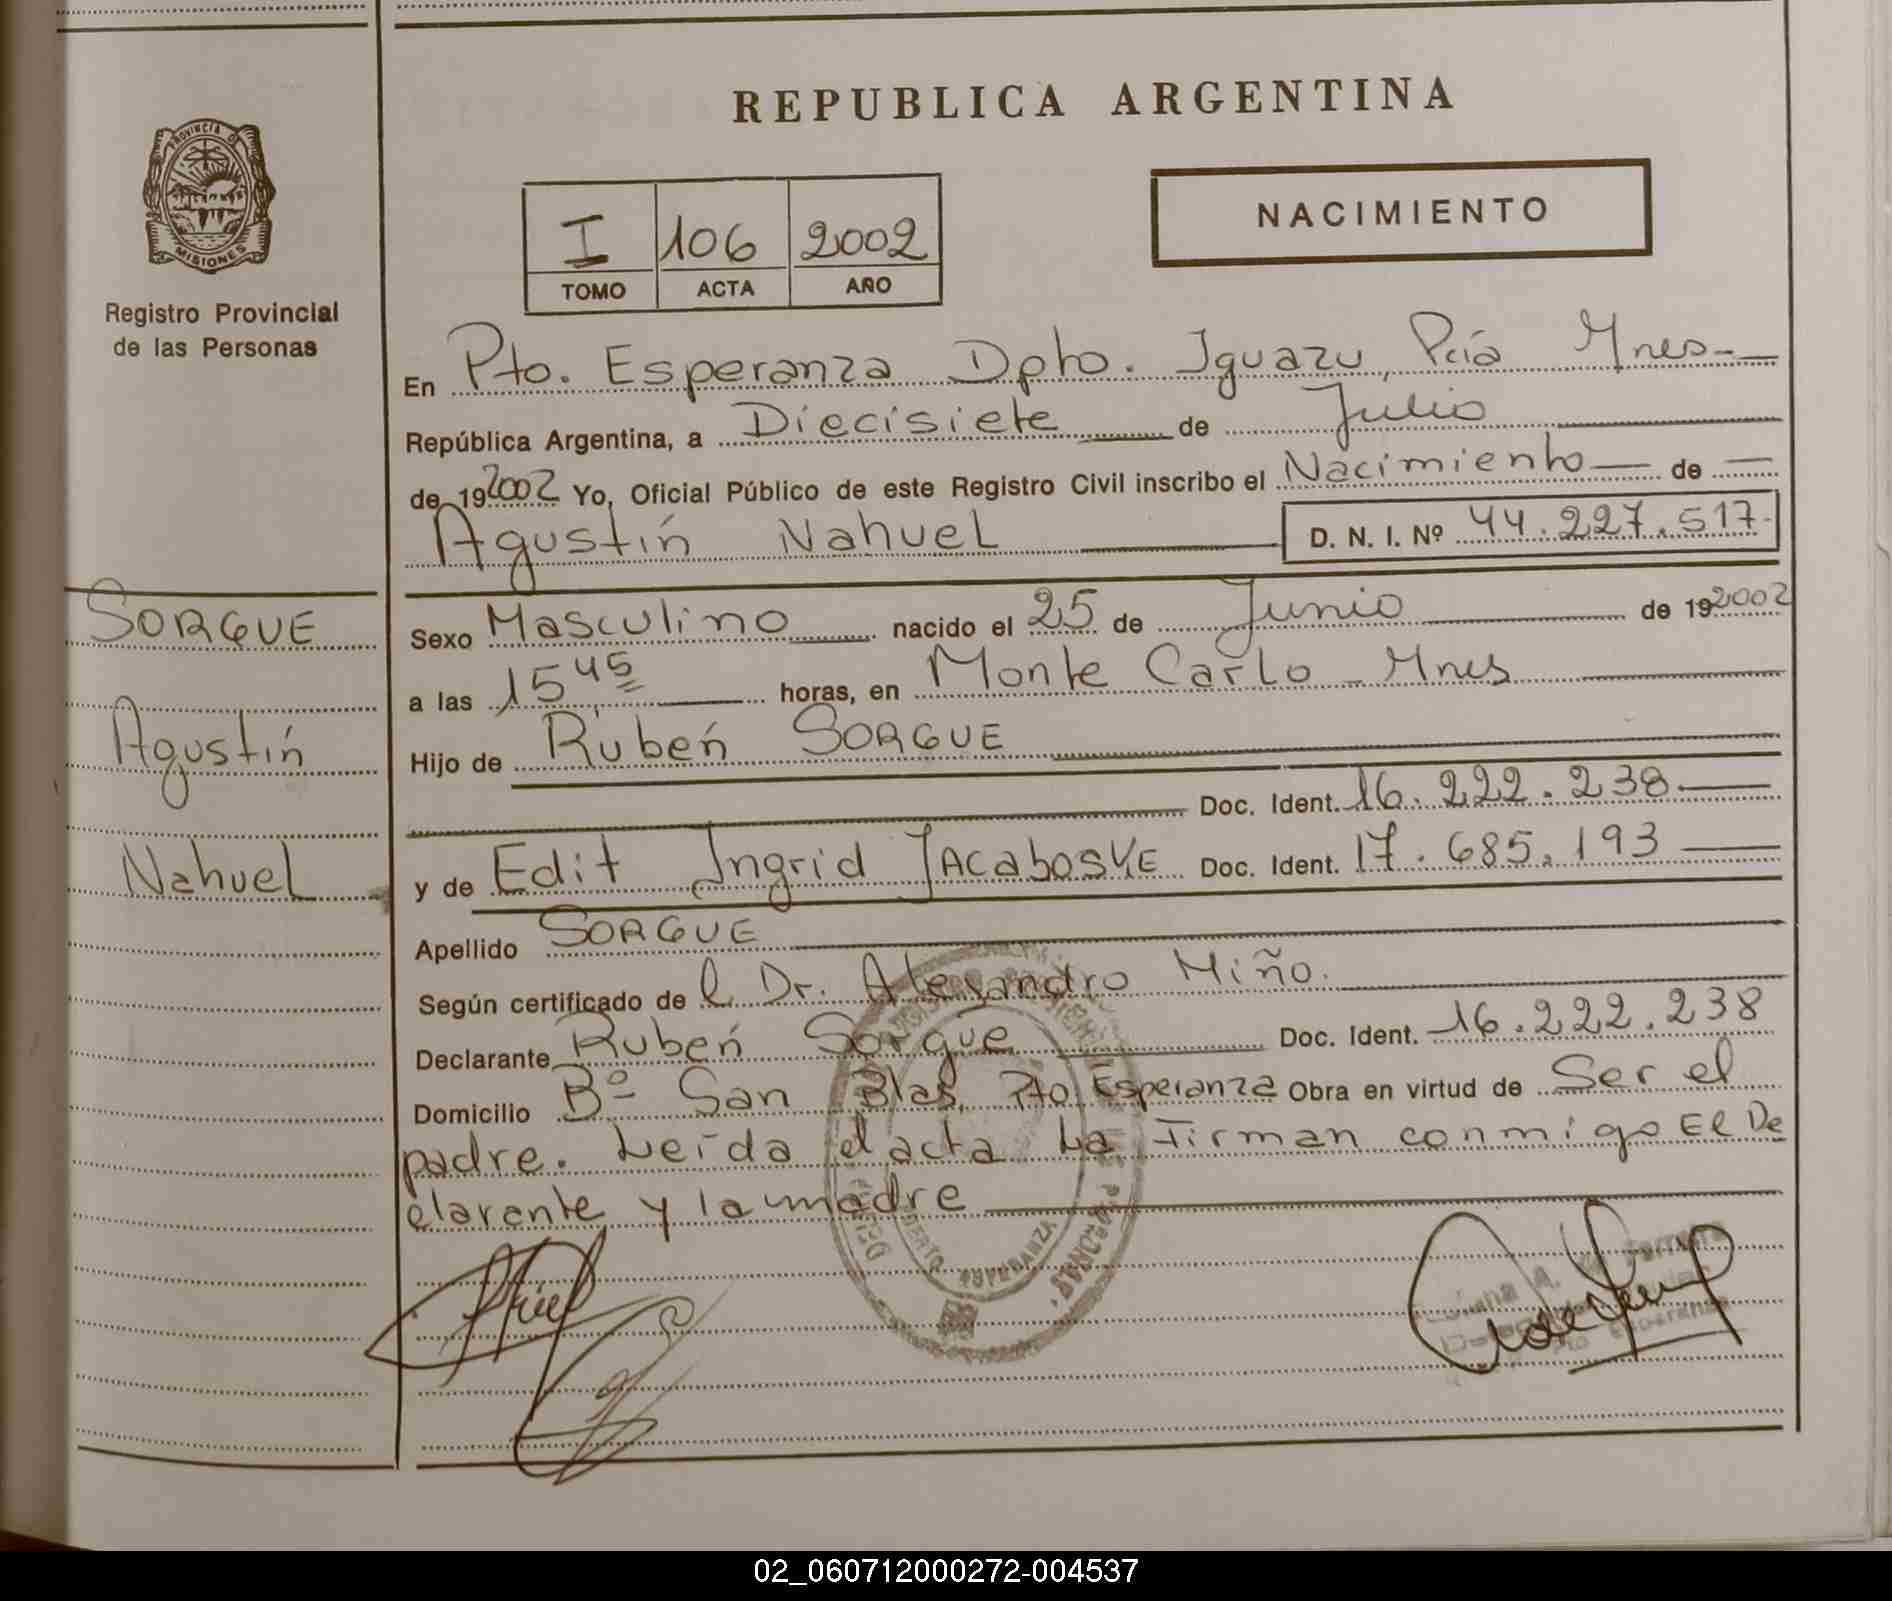 REPUBLICA ARGENTINA
PROVINCIA DE
MISIONES
Registro Provincial
de las Personas
I 106 2002
TOMO ACTA AÑO
NACIMIENTO
En Pto. Esperanza Dpto. Iguazu, Pcia Mnes-
República Argentina, a Diecisiete de Julio
de 192002 Yo, Oficial Público de este Registro Civil inscribo el Nacimiento de
Agustín Nahuel D. N. I. Nº 44.227.517-
SORGUE
Agustín
Nahuel
Sexo Masculino nacido el 25 de Junio de 192002
a las 15 45 horas, en Monte Carlo - Mnes
Hijo de Rubén SORGUE
Doc. Ident. 16.222.238.
y de Edit Ingrid JACABOSKE Doc. Ident. 17.685.193
Apellido SORGUE
Según certificado de l Dr. Alejandro Miño.
Declarante Rubén Sorgue Doc. Ident. 16.222.238
Domicilio Bº San Blas, Pto Esperanza Obra en virtud de Ser el
padre. Leída el acta La Firman conmigo El De
clarante y la madre
PUERTO ESPERANZA
02_060712000272-004537